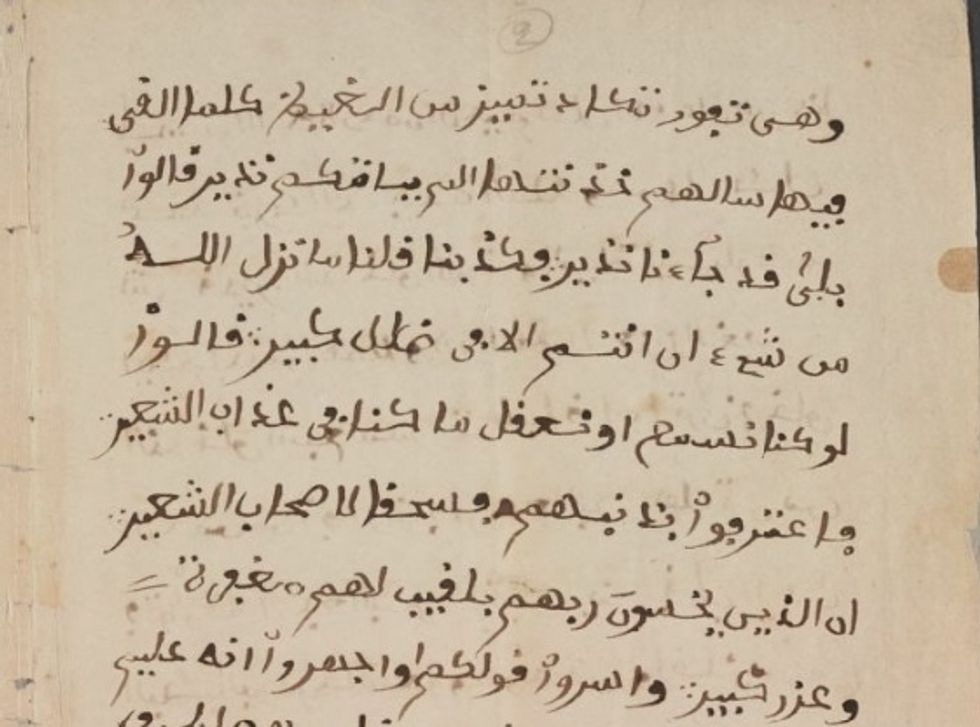 وهى تفور تكاد تمييز من الغييظ كلما القى
فيها سالهم خذنتها الم يياتكم نذير قالوا
بلى قد جآءنا نذير فكذبنا قلنا ما نزل الله
من شيء ان انتم الا في ضلل كبير قالوا
لو كنا نسمع او نعقل ما كنا في عذاب الشعير
فاعترفوا بذنبهم فسحقا لاصحاب الشعير
ان الذين يخشون ربهم بلغيب لهم مغفرة =
وعزر كبير واسروا قولكم او اجهروا انه عليم